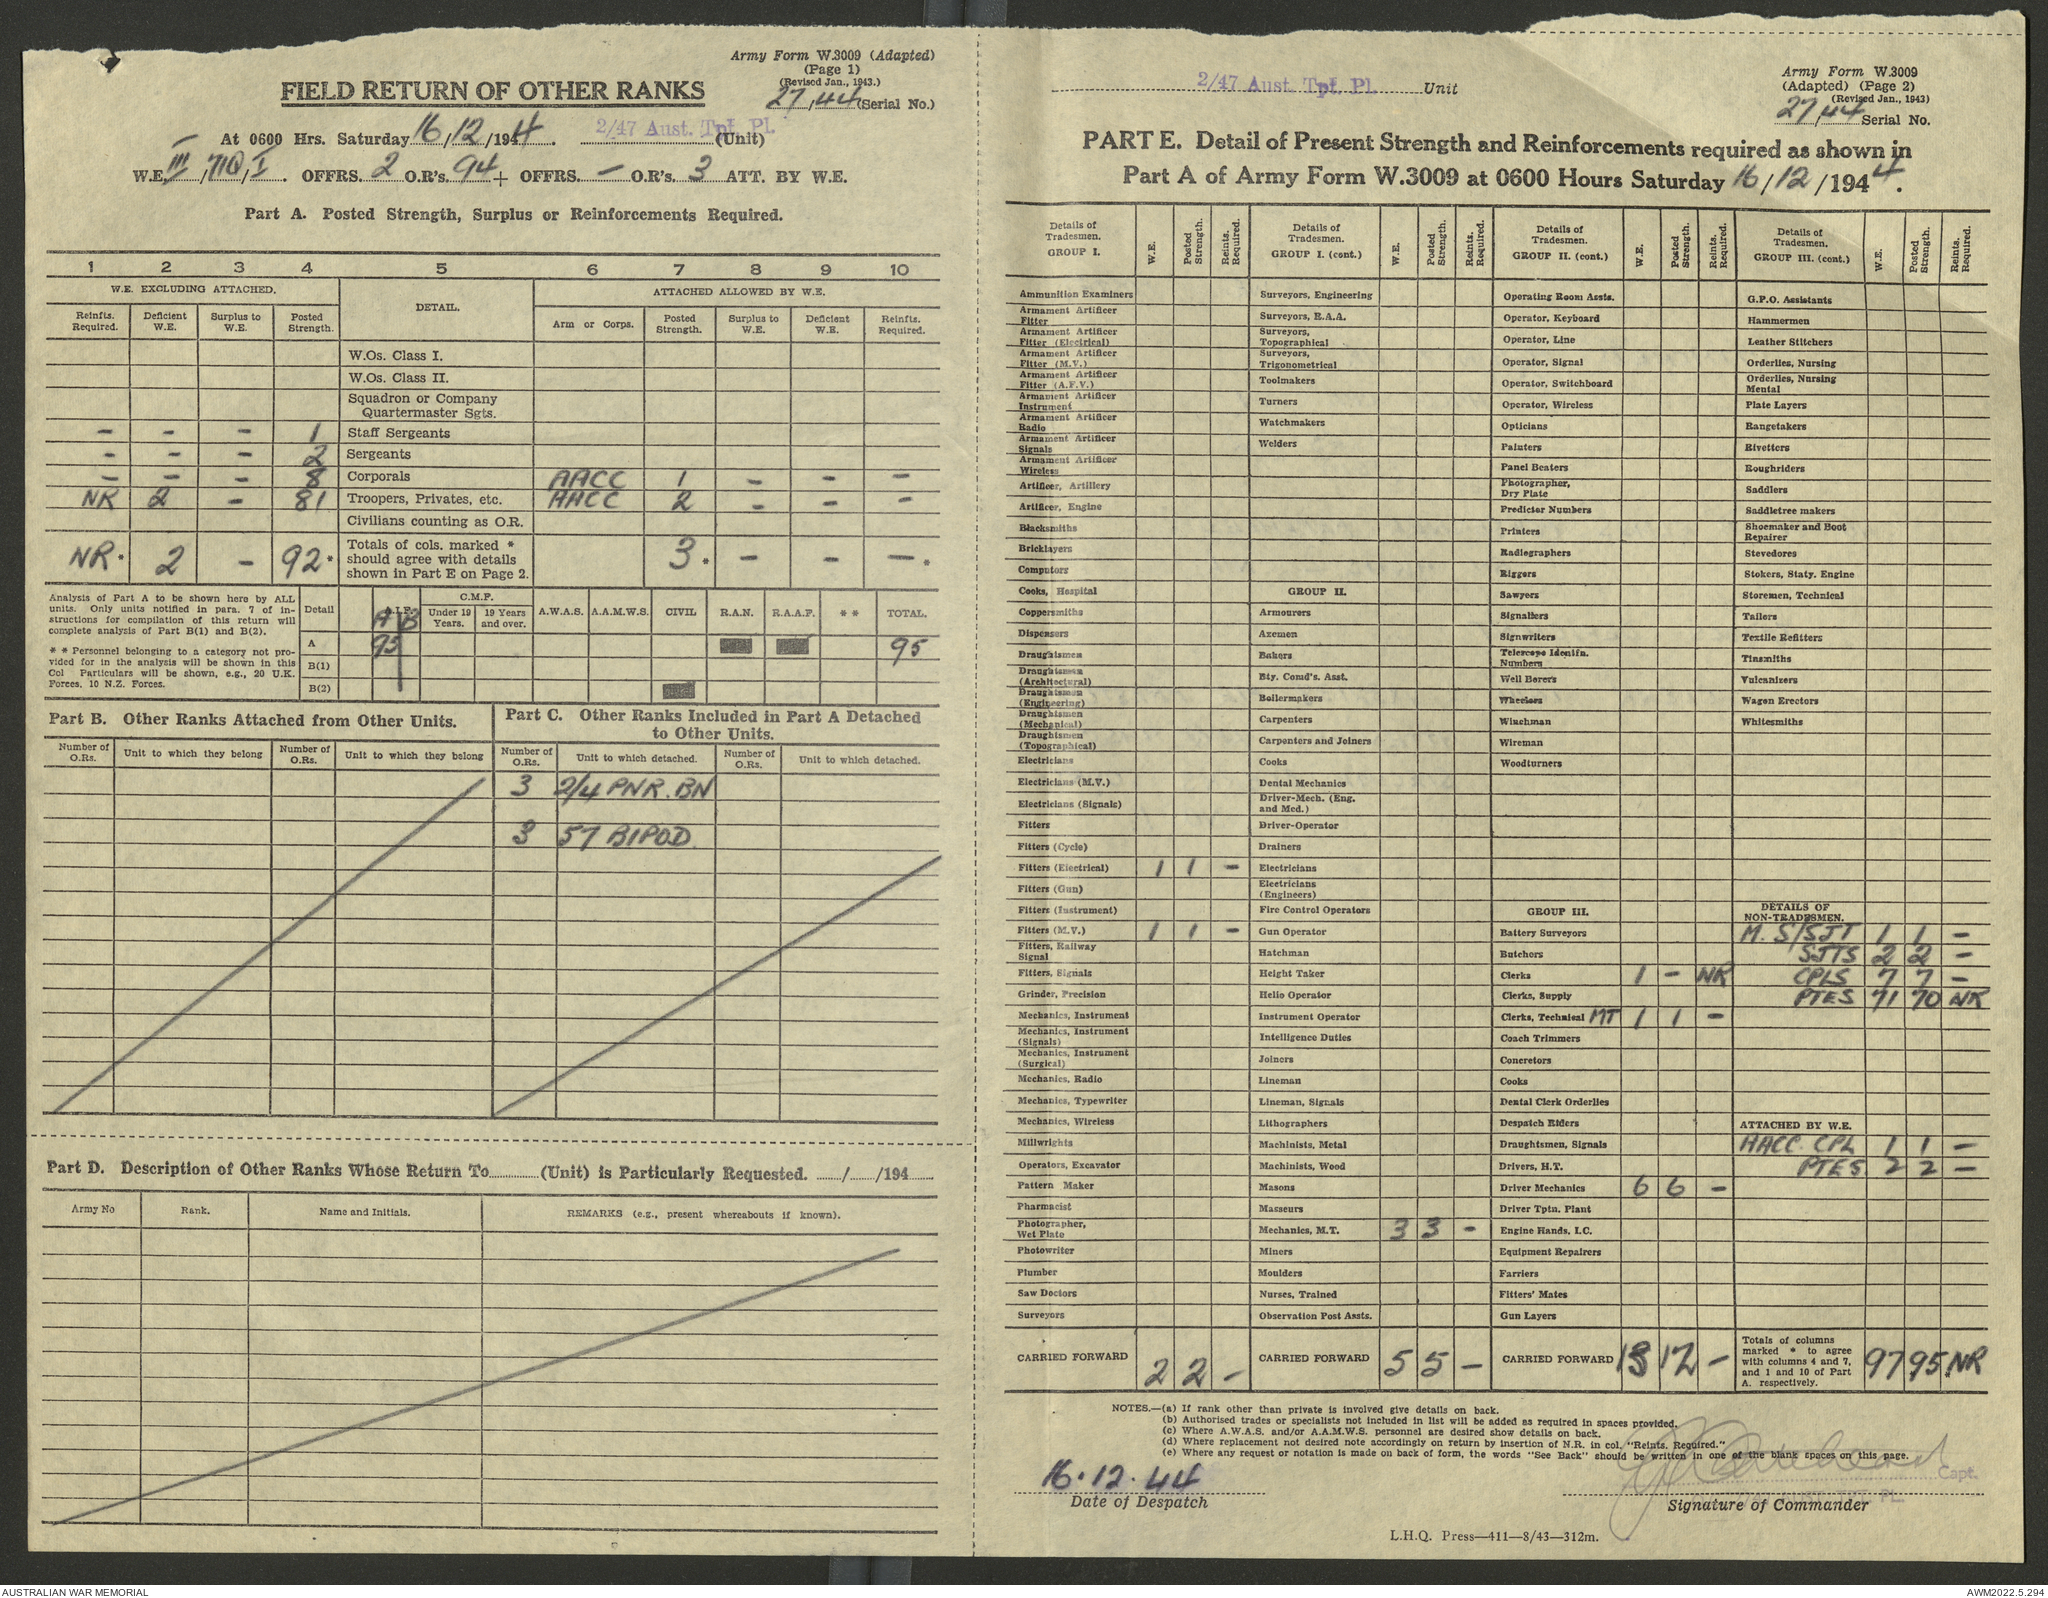 Army Form W.3009 (Adapted)
(Page 1)
(Revised Jan., 1943.)
FIELD RETURN OF OTHER RANKS
27/44 (Serial No.)
At 0600 Hrs. Saturday 16/12/1944. 2/47 Aust. Tpt. Pl. (Unit)
W.E. III/710/I. OFFRS. 2 O.R's. 94 + OFFRS. - O.R's. 3 ATT. BY W.E.
Part A. Posted Strength, Surplus or Reinforcements Required.
1 2 3 4 5 6 7 8 9 10
W.E. EXCLUDING ATTACHED. DETAIL. ATTACHED ALLOWED BY W.E.
Reinfts. Required. Deficient W.E. Surplus to W.E. Posted Strength. Arm or Corps. Posted Strength. Surplus to W.E. Deficient W.E. Reinfts. Required.
W.Os. Class I.
W.Os. Class II.
Squadron or Company Quartermaster Sgts.
- - - 1 Staff Sergeants
- - - 2 Sergeants
- - - 8 Corporals AACC 1 - - -
NR 2 - 81 Troopers, Privates, etc. AACC 2 - - -
Civilians counting as O.R.
NR* 2 - 92* Totals of cols. marked * should agree with details shown in Part E on Page 2. 3* - - -*
Analysis of Part A to be shown here by ALL units. Only units notified in para. 7 of instructions for compilation of this return will complete analysis of Part B(1) and B(2).
** Personnel belonging to a category not provided for in the analysis will be shown in this Col Particulars will be shown, e.g., 20 U.K. Forces, 10 N.Z. Forces.
Detail A.I.F. C.M.F. Under 19 Years. 19 Years and over. A.W.A.S. A.A.M.W.S. CIVIL R.A.N. R.A.A.F. ** TOTAL.
A B
A 95 95
B(1)
B(2)
Part B. Other Ranks Attached from Other Units.
Number of O.Rs. Unit to which they belong Number of O.Rs. Unit to which they belong
Part C. Other Ranks Included in Part A Detached to Other Units.
Number of O.Rs. Unit to which detached. Number of O.Rs. Unit to which detached.
3 2/4 PNR. BN
3 57 BIPOD
Part D. Description of Other Ranks Whose Return To (Unit) is Particularly Requested. / /194
Army No Rank. Name and Initials. REMARKS (e.g., present whereabouts if known).
2/47 Aust. Tpt. Pl. Unit
Army Form W.3009
(Adapted) (Page 2)
(Revised Jan., 1943)
27/44 Serial No.
PART E. Detail of Present Strength and Reinforcements required as shown in
Part A of Army Form W.3009 at 0600 Hours Saturday 16/12/1944.
Details of Tradesmen. GROUP I. W.E. Posted Strength. Reints. Required.
Ammunition Examiners
Armament Artificer Fitter
Armament Artificer Fitter (Electrical)
Armament Artificer Fitter (M.V.)
Armament Artificer Fitter (A.F.V.)
Armament Artificer Instrument
Armament Artificer Radio
Armament Artificer Signals
Armament Artificer Wireless
Artificer, Artillery
Artificer, Engine
Blacksmiths
Bricklayers
Computors
Cooks, Hospital
Coppersmiths
Dispensers
Draughtsmen
Draughtsmen (Architectural)
Draughtsmen (Engineering)
Draughtsmen (Mechanical)
Draughtsmen (Topographical)
Electricians
Electricians (M.V.)
Electricians (Signals)
Fitters
Fitters (Cycle)
Fitters (Electrical) 1 1 -
Fitters (Gun)
Fitters (Instrument)
Fitters (M.V.) 1 1 -
Fitters, Railway Signal
Fitters, Signals
Grinder, Precision
Mechanics, Instrument
Mechanics, Instrument (Signals)
Mechanics, Instrument (Surgical)
Mechanics, Radio
Mechanics, Typewriter
Mechanics, Wireless
Millwrights
Operators, Excavator
Pattern Maker
Pharmacist
Photographer, Wet Plate
Photowriter
Plumber
Saw Doctors
Surveyors
CARRIED FORWARD 2 2 -
Details of Tradesmen. GROUP I. (cont.) W.E. Posted Strength. Reints. Required.
Surveyors, Engineering
Surveyors, R.A.A.
Surveyors, Topographical
Surveyors, Trigonometrical
Toolmakers
Turners
Watchmakers
Welders
GROUP II.
Armourers
Axemen
Bakers
Bty. Comd's. Asst.
Boilermakers
Carpenters
Carpenters and Joiners
Cooks
Dental Mechanics
Driver-Mech. (Eng. and Med.)
Driver-Operator
Drainers
Electricians
Electricians (Engineers)
Fire Control Operators
Gun Operator
Hatchman
Height Taker
Helio Operator
Instrument Operator
Intelligence Duties
Joiners
Lineman
Lineman, Signals
Lithographers
Machinists, Metal
Machinists, Wood
Masons
Masseurs
Mechanics, M.T. 3 3 -
Miners
Moulders
Nurses, Trained
Observation Post Assts.
CARRIED FORWARD 5 5 -
Details of Tradesmen. GROUP II. (cont.) W.E. Posted Strength. Reints. Required.
Operating Room Assts.
Operator, Keyboard
Operator, Line
Operator, Signal
Operator, Switchboard
Operator, Wireless
Opticians
Painters
Panel Beaters
Photographer, Dry Plate
Predictor Numbers
Printers
Radiographers
Riggers
Sawyers
Signallers
Signwriters
Telescope Identfn. Numbers
Well Borers
Wheelers
Winchman
Wireman
Woodturners
GROUP III.
Battery Surveyors
Butchers
Clerks 1 - NR
Clerks, Supply
Clerks, Technical MT 1 1 -
Coach Trimmers
Concretors
Cooks
Dental Clerk Orderlies
Despatch Riders
Draughtsmen, Signals
Drivers, H.T.
Driver Mechanics 6 6 -
Driver Tptn. Plant
Engine Hands, I.C.
Equipment Repairers
Farriers
Fitters' Mates
Gun Layers
CARRIED FORWARD 13 12 -
Details of Tradesmen. GROUP III. (cont.) W.E. Posted Strength. Reints. Required.
G.P.O. Assistants
Hammermen
Leather Stitchers
Orderlies, Nursing
Orderlies, Nursing Mental
Plate Layers
Rangetakers
Rivetters
Roughriders
Saddlers
Saddletree makers
Shoemaker and Boot Repairer
Stevedores
Stokers, Staty. Engine
Storemen, Technical
Tailors
Textile Refitters
Tinsmiths
Vulcanizers
Wagon Erectors
Whitesmiths
DETAILS OF NON-TRADESMEN.
M. S/SJT 1 1 -
SJTS 2 2 -
CPLS 7 7 -
PTES 71 70 NR
ATTACHED BY W.E.
AACC CPL 1 1 -
PTES 2 2 -
Totals of columns marked * to agree with columns 4 and 7, and 1 and 10 of Part A. respectively. 97 95 NR
NOTES.—(a) If rank other than private is involved give details on back.
(b) Authorised trades or specialists not included in list will be added as required in spaces provided.
(c) Where A.W.A.S. and/or A.A.M.W.S. personnel are desired show details on back.
(d) Where replacement not desired note accordingly on return by insertion of N.R. in col. "Reints. Required."
(e) Where any request or notation is made on back of form, the words "See Back" should be written in one of the blank spaces on this page.
16.12.44
Capt.
Date of Despatch
Signature of Commander
L.H.Q. Press—411—8/43—312m.
AUSTRALIAN WAR MEMORIAL
AWM2022.5.294